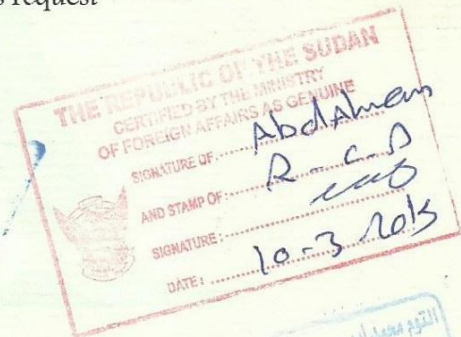 s request
THE REPUBLIC OF THE SUDAN
CERTIFIED BY THE MINISTRY
OF FOREIGN AFFAIRS AS GENUINE
SIGNATURE OF
AND STAMP OF:
R-C-D
SIGNATURE:
DATE: 10-3 2015
التوم محمد